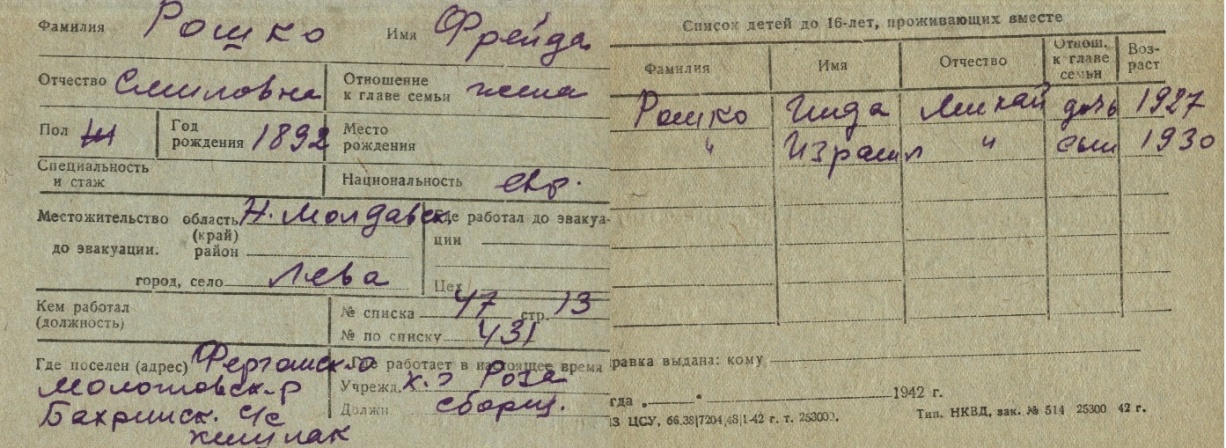 Фамилия Рошко Имя Фрейда
Отчество Смиловна Отношение к главе семьи жена
Пол Ж Год рождения 1892 Место рождения
Специальность и стаж Национальность евр.
Местожительство до эвакуации. область (край) Н. Молдавск. Где работал до эвакуации
район
город, село Лева Цех
Кем работал (должность) № списка 47 стр. 13
№ по списку 431
Где поселен (адрес) Ферганско Где работает в настоящее время
Молотовск. р Учрежд. к-з Роза
Бахринск. с/с Должн. сборщ.
кишлак
Список детей до 16-лет, проживающих вместе
Фамилия Имя Отчество Отнош. к главе семьи Возраст
Рошко Михай дочь 1927
" Израил " сын 1930
правка выдана: кому
гда „ " 1942 г.
ЦСУ, 66.38|7204,48|1-42 г. т. 253000. Тип. НКВД, зак. № 514 25300 42 г.